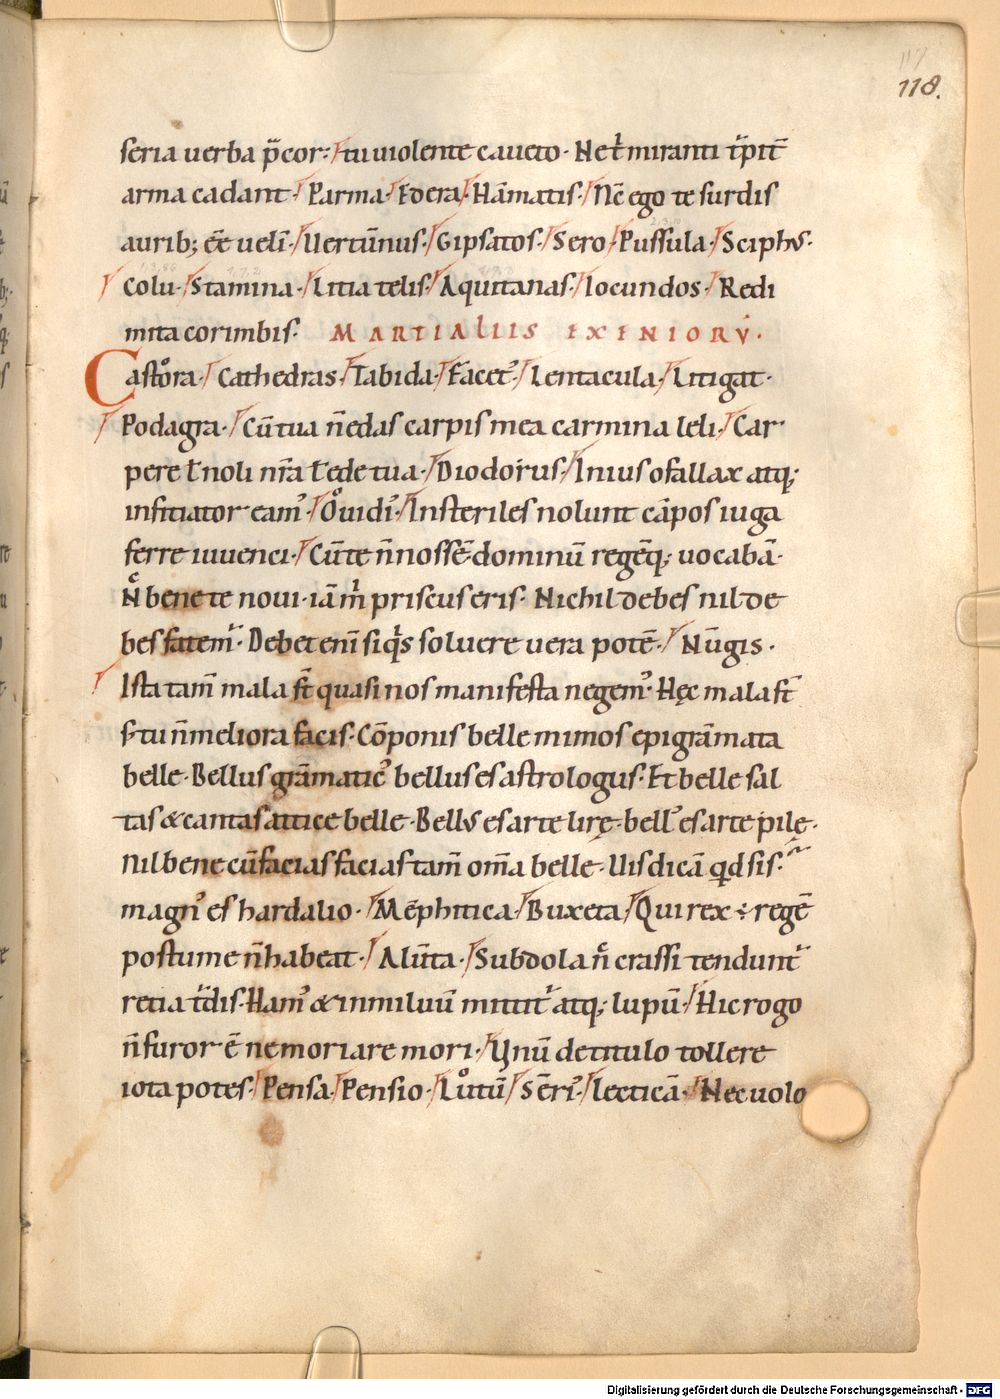 117
118.
seria uerba p̄cor: tu uiolente caueto· Ne t̄ miranti t̄pit̄
arma cadant· Parma· Edera· Hāmatis· Nē ego te surdis
aurib; ēē uelī· Uertūnus· Gipsatos· Sero· Pussula· Sciphꝰ·
Colu· Stamina· Litia telis· Aquitanas· Iocundos· Redi
mita corimbis· MARTIALIIS EXENIORV̄·
Castora· Cathedras· Tabida· Facetꝰ· Lentacula· Litigat·
Podagra· Cū tua n̄ edas carpis mea carmina leli· Car
pere ł noli nr̄a ł ede tua· Diodorus· Inius o fallax atq;
infitiator eamꝰ· Ouidiꝰ· Insteriles nolunt cāpos iuga
ferre iuuenci· Cū te n̄ nossē dominū regēq; uocabā·
N̄ bene te noui· iā m̄ priscus eris· Nichil debes nil de
bes fatem̄· Debet enī siqͥs soluere uera potē· Nūgis·
Ista tam̄ mala st̄ quasi nos manifesta negemꝰ· Hęc mala st̄
s; tu n̄ meliora facis· Cōponis belle mimos epigrāmata
belle· Bellus grāmaticꝰ bellus es astrologus· Et belle sal
tas & cantas attice belle· Bellꝰ es arte lirę· bellꝰ es arte pilę·
Nil bene cū facias facias tam̄ om̄a belle· Uis dicā qͥd sis·
magnꝰ es hardalio· Mēphitica· Buxeta· Qui rex ÷ regē
postume n̄ habeat· Alūta· Subdola n̄ crassi tendunt̄
retia t̄dis· Hamꝰ & in miluū mittit̄ atq; lupū· Hic rogo
n̄ furor ē ne moriare mori· Unū de titulo tollere
iota potes· Pensa· Pensio· Lutū· Sērꝰ· lecticā· Nec uolo
Digitalisierung gefördert durch die Deutsche Forschungsgemeinschaft - DFG